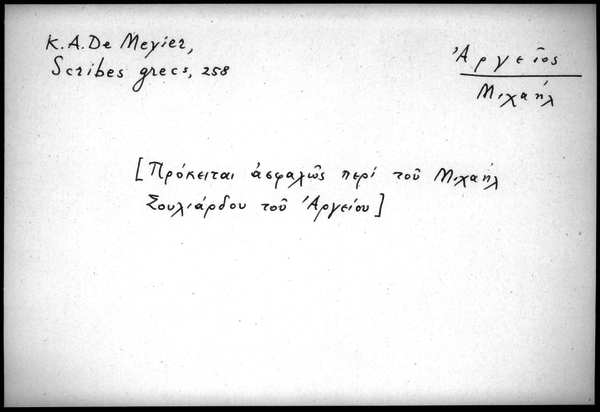 K. A. De Meyier,
Scribes grecs, 258
Ἀργεῖος
Μιχαήλ
[Πρόκειται ἀσφαλῶς περί τοῦ Μιχαήλ
Σουλιάρδου τοῦ Ἀργείου]